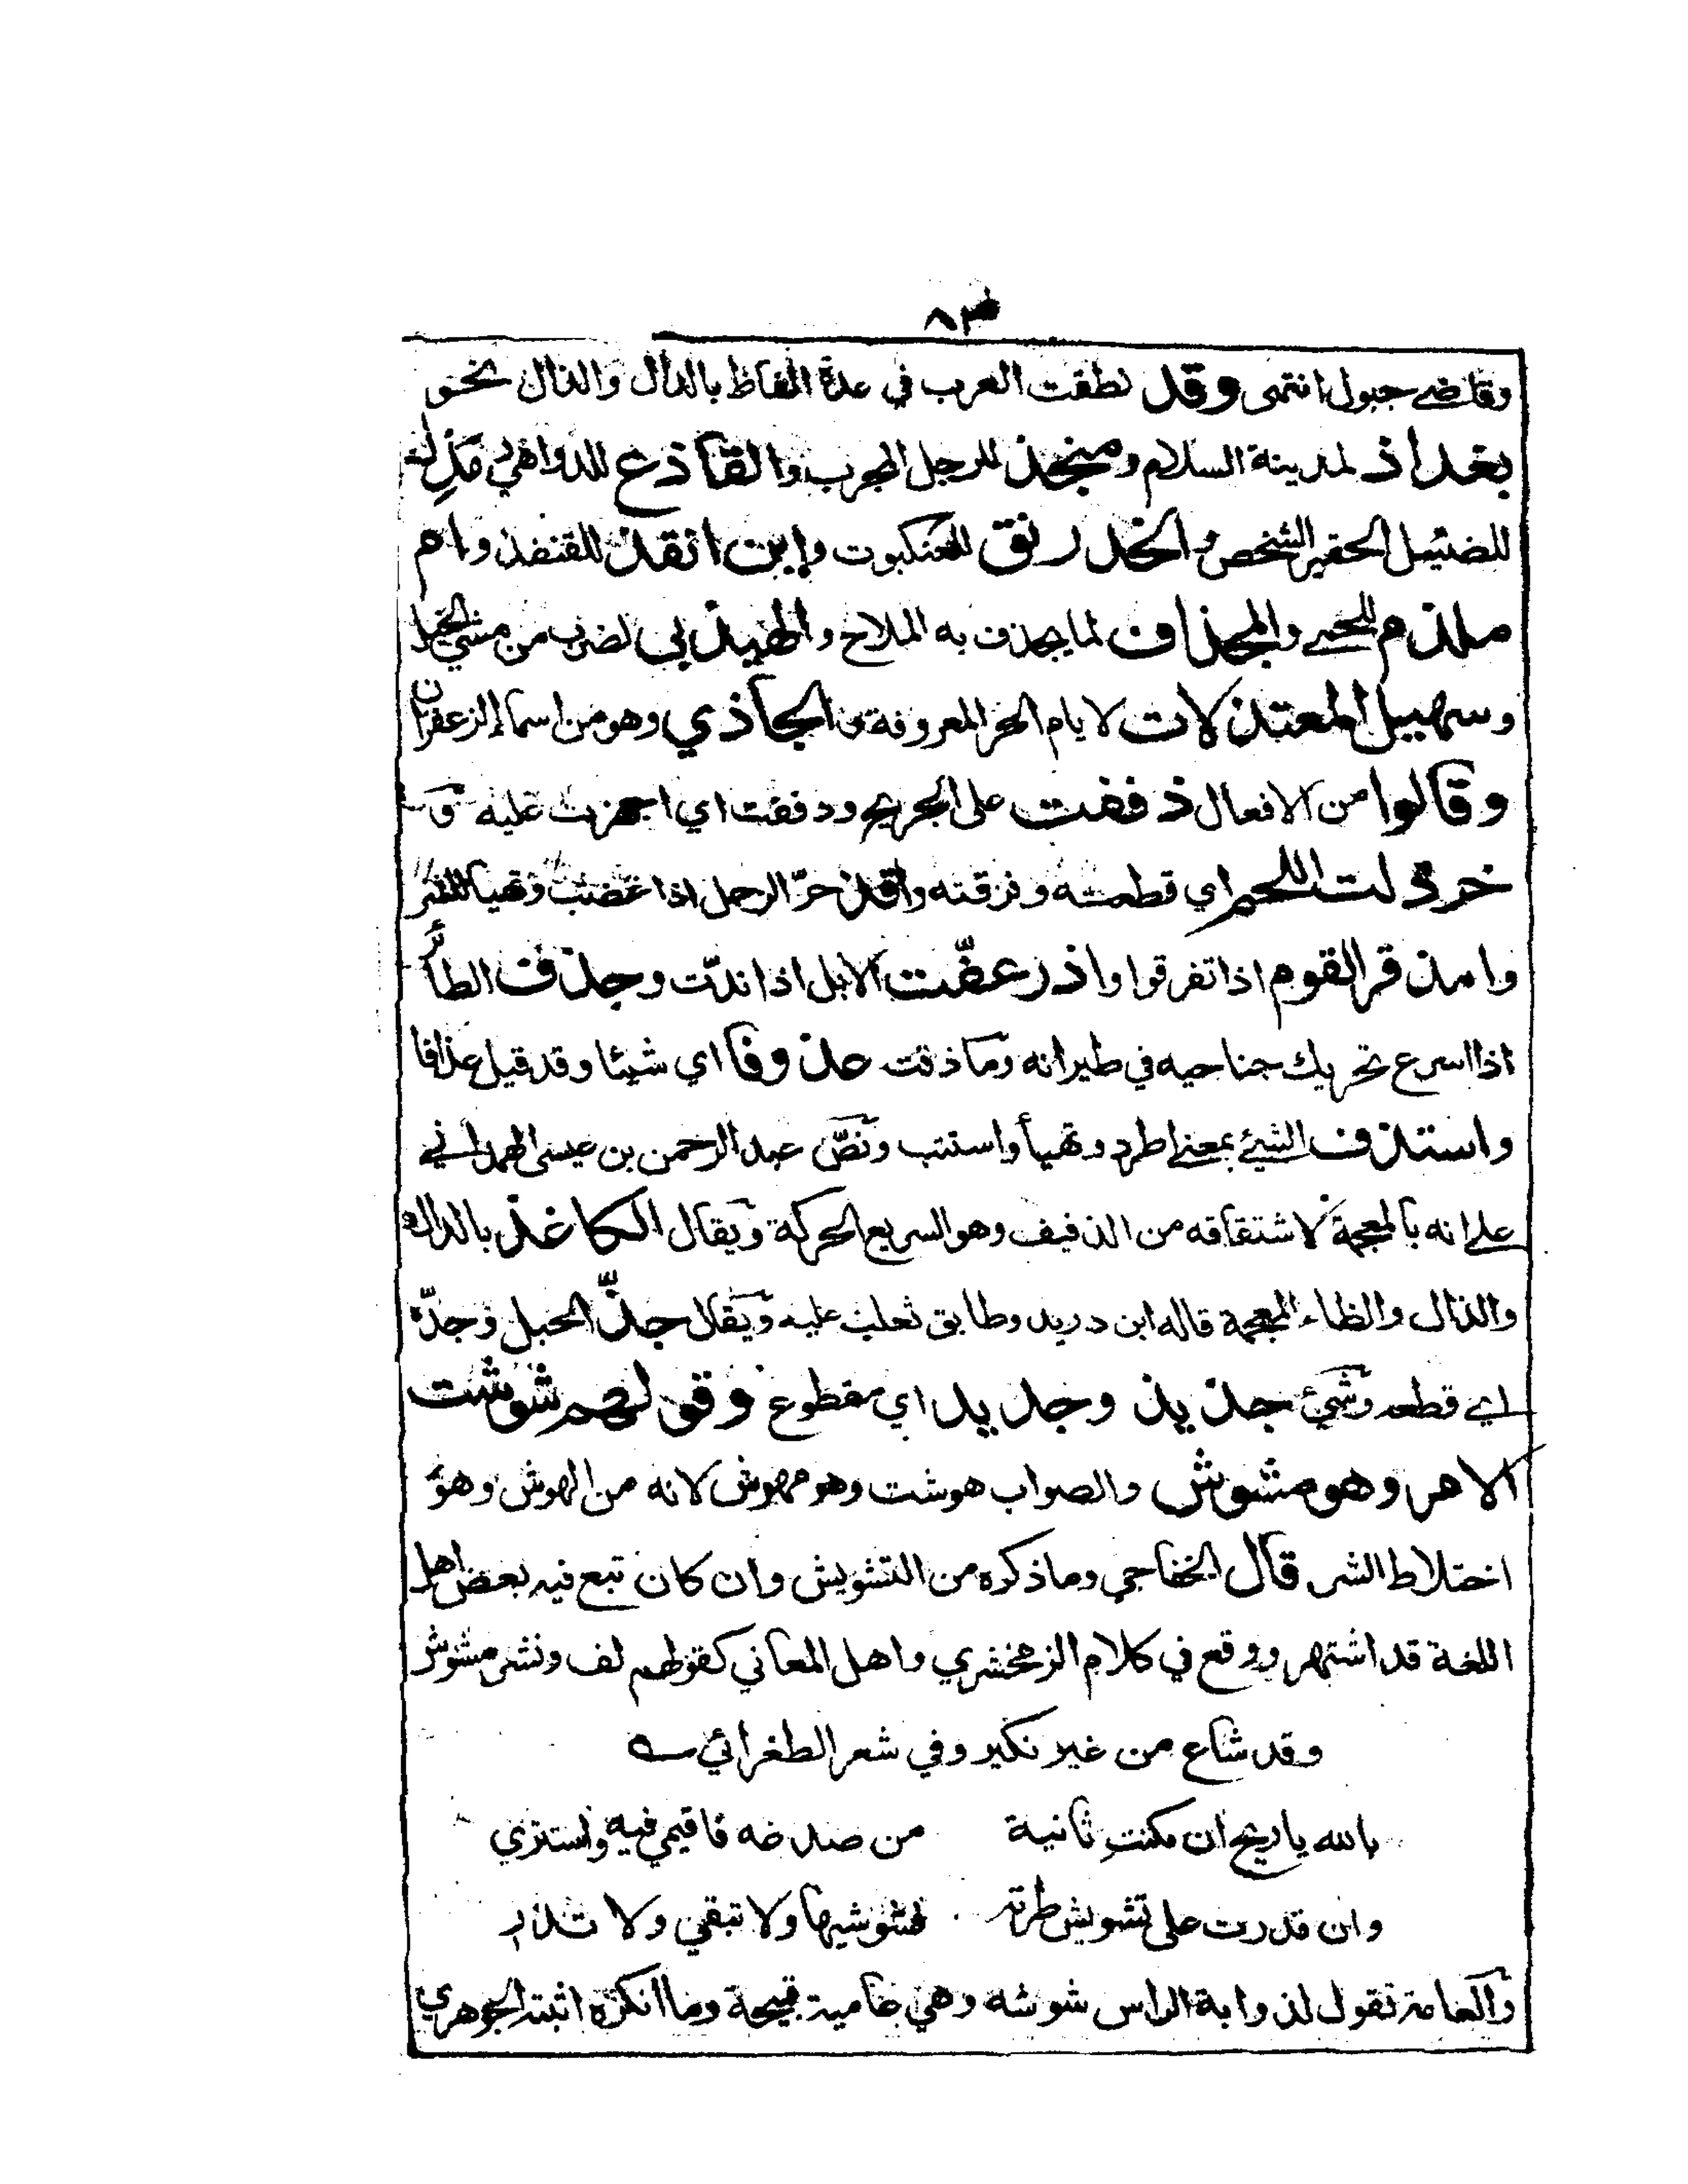 ٨٣
وقاضي جبول انتهى وقد نطقت العرب في عدة الفاظ بالدال والذال نحو
بغداذ لمدينة السلام ومنجذ للرجل المجرب والقاذع للدواهي ومذل
للضئيل الحقير الشخص والخذرنق للعنكبوت وابن انقذ للقنفذ وام
ملذم للحمى والمجذاف لما يجذف به الملاح والهيذبى لضرب من مشي الخيل
وسهيل المعتذلات لايام الحر المعروفة والجاذي وهو من اسماء الزعفران
وقالوا من الافعال ذففت على الجريح ودففت اي اجهزت عليه و
خرذلت اللحم اي قطعته ومزقته واقذحر الرجل اذا غضب وتهيا للشر
وامذقر القوم اذا تفرقوا واذرعفّت الابل اذا ندّت وجذف الطائر
اذا اسرع تحريك جناحيه في طيرانه وما ذقت عذوفا اي شيئا وقد قيل عذافا
واستذف الشيئ بمعنى اطرد وتهيأ واستتب ونصّ عبد الرحمن بن عيسى الهمداني
على انه بالمعجمة لاشتقاقه من الذفيف وهو السريع الحركة ويقال الكاغذ بالدال
والذال والظاء المعجمة قاله ابن دريد وطابق ثعلب عليه ويقال جذّ الحبل وجدّه
اي قطعه وشيئ جذيذ وجديد اي مقطوع وقولهم شوشت
الامر وهو مشوش والصواب هوشت وهو مهوش لانه من الهوش وهو
اختلاط الشر قال الخفاجي وما ذكره من التشويش وان كان تبع فيه بعض اهل
اللغة قد اشتهر ووقع في كلام الزمخشري واهل المعاني كقولهم لف ونشر مشوش
وقد شاع من غير نكير وفي شعر الطغرائي
بالله يا ريح ان مكنتِ ثانية من صدغه فاقيمي فيه واستتري
وان قدرت على تشويش طرته فشوشيها ولا تبقي ولا تذر
والعامة تقول لذوابة الراس شوشه وهي عامية قبيحة وما انكره اثبته الجوهري